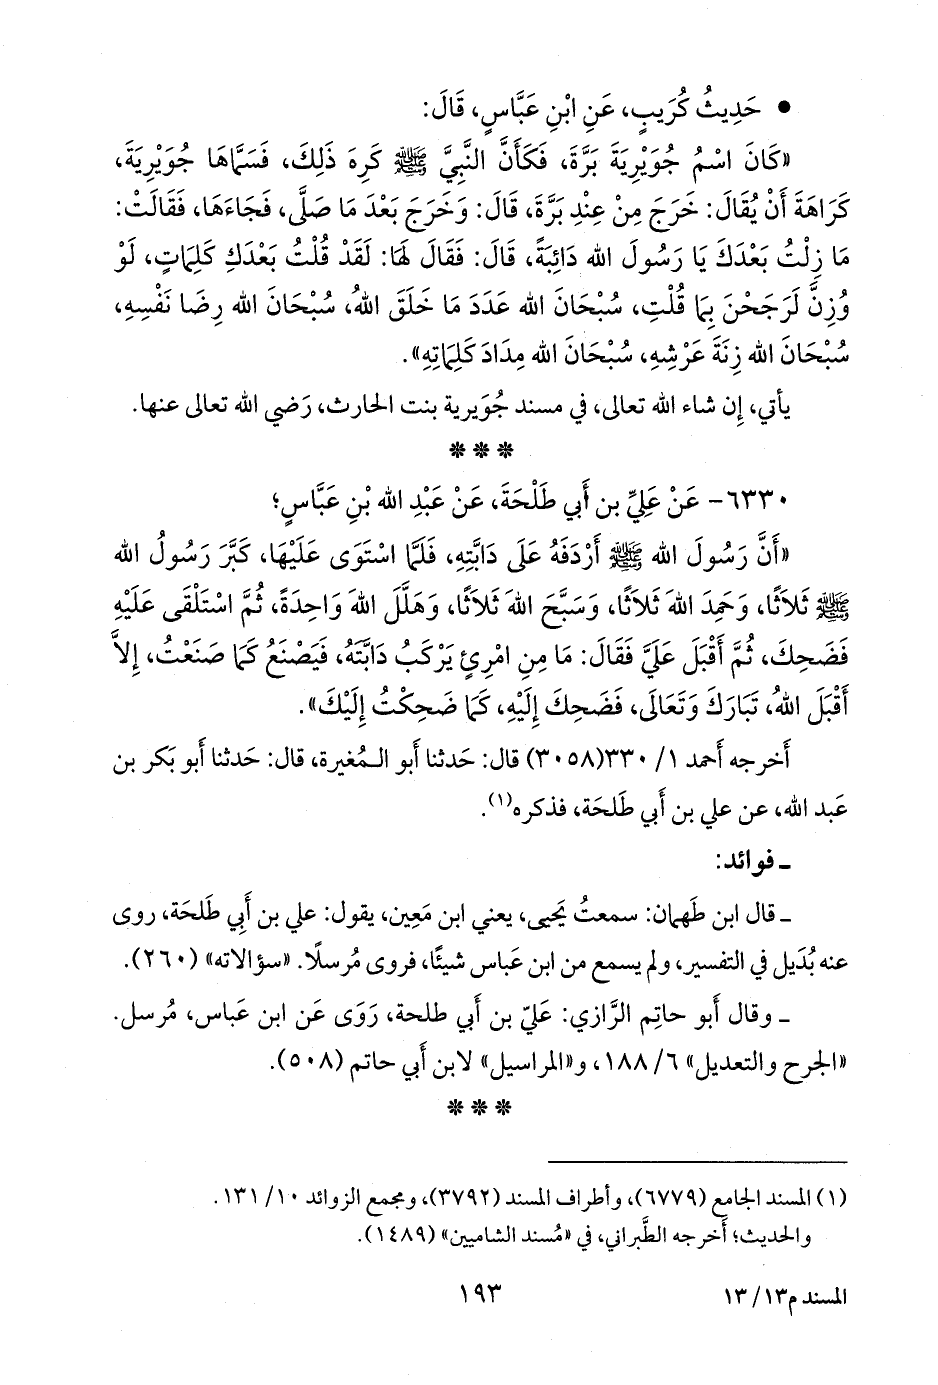 ● حَدِيثُ كُرَيبٍ، عَنِ ابْنِ عَبَّاسٍ، قَالَ:
«كَانَ اسْمُ جُوَيْرِيَةَ بَرَّةَ، فَكَأَنَّ النَّبِيَّ ﷺ كَرِهَ ذَلِكَ، فَسَمَّاهَا جُوَيْرِيَةَ،
كَرَاهَةَ أَنْ يُقَالَ: خَرَجَ مِنْ عِنْدِ بَرَّةَ، قَالَ: وَخَرَجَ بَعْدَ مَا صَلَّى، فَجَاءَهَا، فَقَالَتْ:
مَا زِلْتُ بَعْدَكَ يَا رَسُولَ الله دَائِبَةً، قَالَ: فَقَالَ لَهَا: لَقَدْ قُلْتُ بَعْدَكِ كَلِمَاتٍ، لَوْ
وُزِنَّ لَرَجَحْنَ بِمَا قُلْتِ، سُبْحَانَ الله عَدَدَ مَا خَلَقَ اللهُ، سُبْحَانَ الله رِضَا نَفْسِهِ،
سُبْحَانَ الله زِنَةَ عَرْشِهِ، سُبْحَانَ الله مِدَادَ كَلِمَاتِهِ».
يأتي، إِن شاء الله تعالى، في مسند جُوَيرية بنت الحارث، رَضي الله تعالى عنها.
* * *
٦٣٣٠- عَنْ عَلِيِّ بن أَبي طَلْحَةَ، عَنْ عَبْدِ الله بْنِ عَبَّاسٍ؛
«أَنَّ رَسُولَ الله ﷺ أَرْدَفَهُ عَلَى دَابَّتِهِ، فَلَمَّا اسْتَوَى عَلَيْهَا، كَبَّرَ رَسُولُ الله
ﷺ ثَلاَثًا، وَحَمِدَ اللهَ ثَلاَثًا، وَسَبَّحَ اللهَ ثَلاَثًا، وَهَلَّلَ اللهَ وَاحِدَةً، ثُمَّ اسْتَلْقَى عَلَيْهِ
فَضَحِكَ، ثُمَّ أَقْبَلَ عَلَيَّ فَقَالَ: مَا مِنِ امْرِئٍ يَرْكَبُ دَابَّتَهُ، فَيَصْنَعُ كَمَا صَنَعْتُ، إِلاَّ
أَقْبَلَ اللهُ، تَبَارَكَ وَتَعَالَى، فَضَحِكَ إِلَيْهِ، كَمَا ضَحِكْتُ إِلَيْكَ».
أَخرجه أَحمد ١/ ٣٣٠(٣٠٥٨) قال: حَدثنا أَبو الـمُغيرة، قال: حَدثنا أَبو بَكر بن
عَبد الله، عن علي بن أَبي طَلحَة، فذكره(١).
ـ فوائد:
ـ قال ابن طَهمان: سمعتُ يَحيى، يعني ابن مَعِين، يقول: علي بن أَبي طلحَة، روى
عنه بُدَيل في التفسير، ولم يسمع من ابن عَباس شيئًا، فروى مُرسلًا. «سؤالاته» (٢٦٠).
ـ وقال أَبو حاتِم الرَّازي: عَليّ بن أَبي طلحة، رَوَى عَن ابن عَباس، مُرسل.
«الجرح والتعديل» ٦/ ١٨٨، و«المراسيل» لابن أَبي حاتم (٥٠٨).
* * *
(١) المسند الجامع (٦٧٧٩)، وأطراف المسند (٣٧٩٢)، ومجمع الزوائد ١٠/ ١٣١.
والحديث؛ أَخرجه الطَّبراني، في «مُسند الشاميين» (١٤٨٩).
المسند م١٣/ ١٣
١٩٣